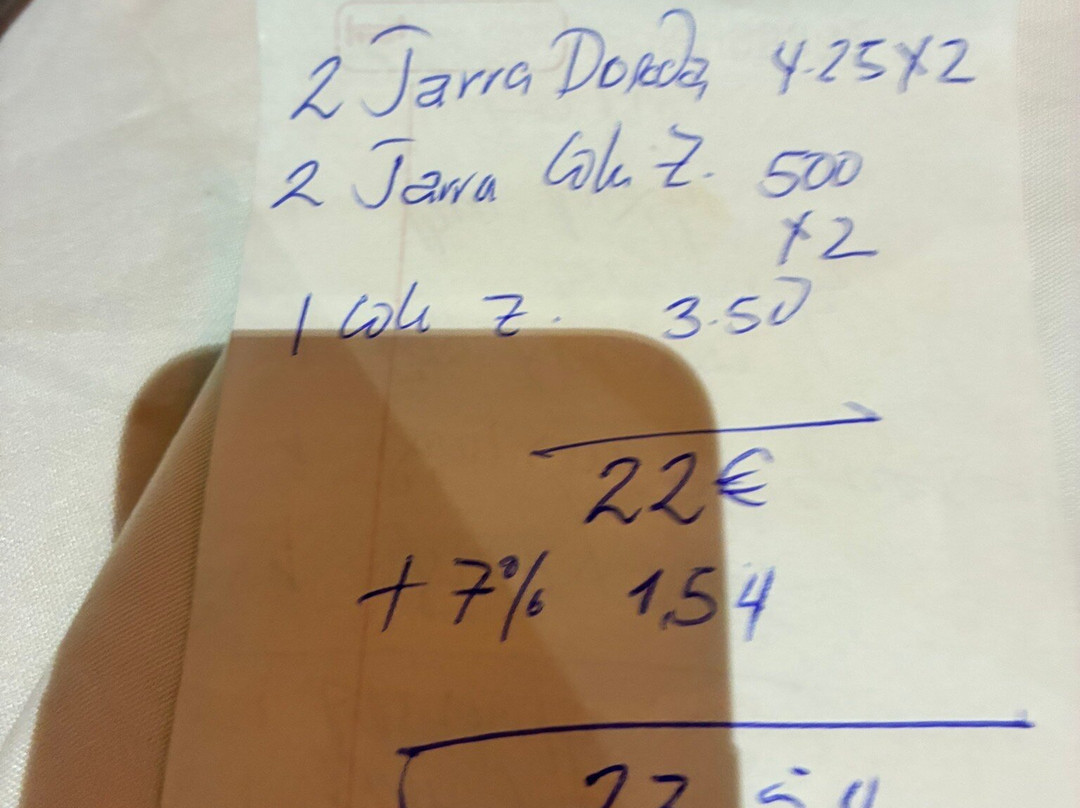 2 Jarra Dorada 4.25x2
2 Jarra Cola Z. 500
x2
1 Cola Z. 3.50
22€
+ 7% 1,54
23 54